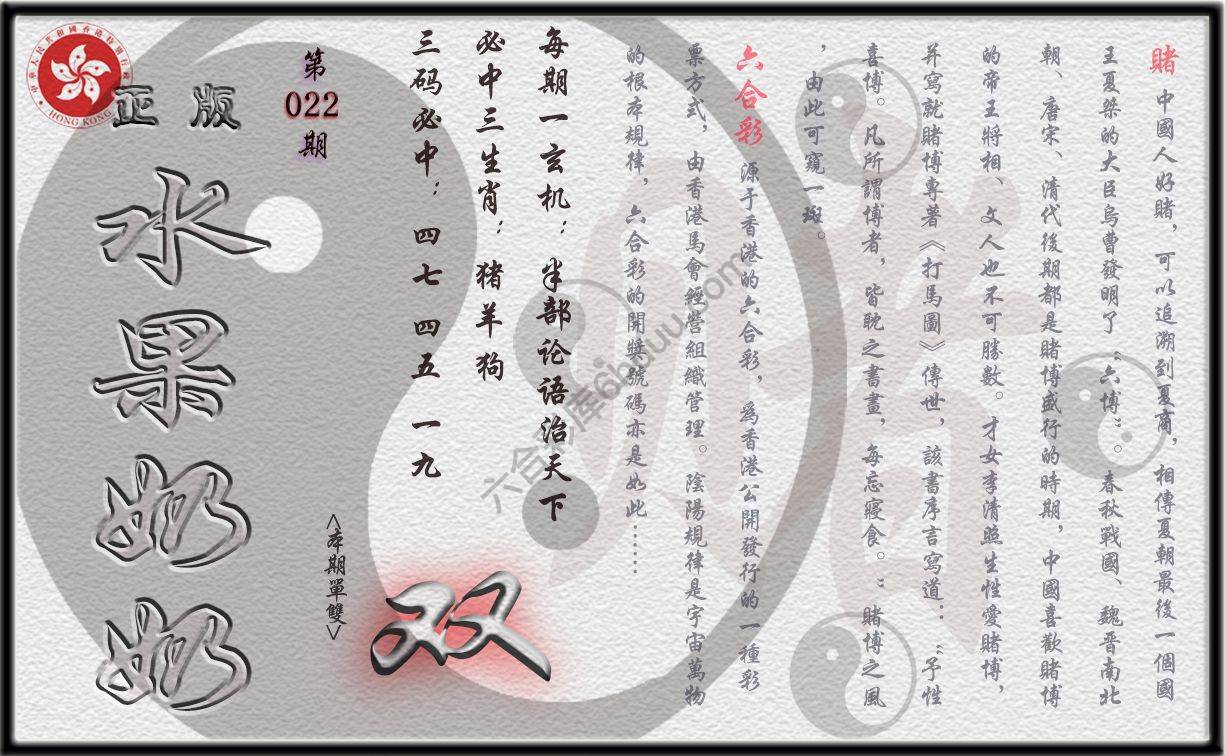 賭 中國人好賭，可以追溯到夏商，相傳夏朝最後一個國
王夏桀的大臣烏曹發明了“六博”。春秋戰國、魏晋南北
朝、唐宋、清代後期都是賭博盛行的時期，中國喜歡賭博
的帝王將相、文人也不可勝數。才女李清照生性愛賭博，
并寫就賭博專著《打馬圖》傳世，該書序言寫道：“予性
喜博。凡所謂博者，皆耽之書畫，每忘寢食。”賭博之風
，由此可窺一斑。
六合彩 源于香港的六合彩，為香港公開發行的一種彩
票方式，由香港馬會經營組織管理。陰陽規律是宇宙萬物
的根本規律，六合彩的開獎號碼亦是如此……
每期一玄机：半部论语治天下
必中三生肖：猪羊狗
三码必中：四七 四五 一九
第
022
期
<本期單雙>
双
正版
水果奶奶
HONG KONG
六合彩库6huuu.com